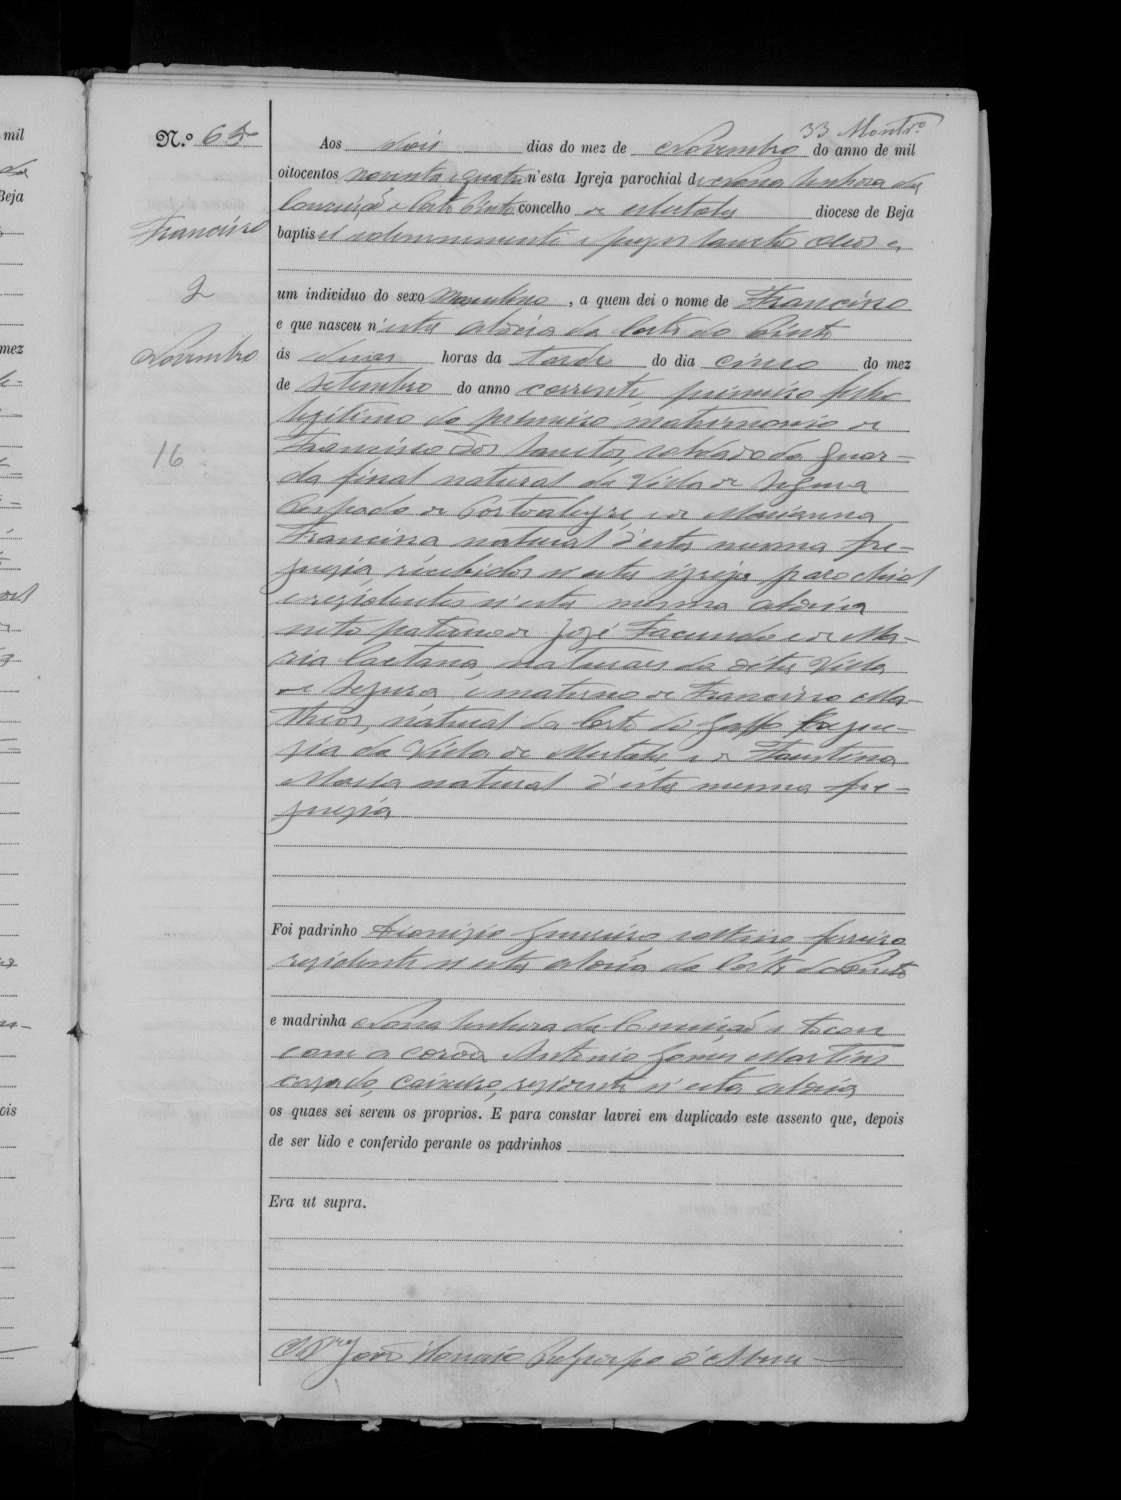 33 Montr.º
N.º 65
Aos dois dias do mez de Novembro do anno de mil
oitocentos noventa e quatro n'esta Igreja parochial de Nossa Senhora da
Conceição e Corte Pinto concelho de Mertola diocese de Beja
Francisco
baptisei solemnemente e puz os Santos Oleos a
2
um individuo do sexo masculino, a quem dei o nome de Francisco
e que nasceu n'esta aldeia da Corte do Pinto
Novembro
ás duas horas da tarde do dia cinco do mez
de Setembro do anno corrente, primeiro filho
legitimo do primeiro matrimonio de
16
Francisco dos Santos, soldado da Guar-
da fiscal natural da Villa de Segura
Bispado de Portoalegre, e de Marianna
Francisca natural d'esta mesma fre-
guezia, recebidos n'esta igreja parochial
e rezidentes n'esta mesma aldeia
neto paterno de José Facundo e de Ma-
ria Caetana, naturaes da dita Villa
de Segura, e materno de Francisco Ma-
theos, natural da Corte do Gaffo fregue-
zia da Villa de Mertola e de Faustina
Maria natural d'esta mesma fre-
guezia
Foi padrinho Dionizio Guerreiro, solteiro, ferreiro
rezidente n'esta aldeia da Corte do Pinto
e madrinha Nossa Senhora da Conceição e tocou
com a corôa Antonio Gomes Martins
casado, caixeiro, rezidente n'esta aldeia
os quaes sei serem os proprios. E para constar lavrei em duplicado este assento que, depois
de ser lido e conferido perante os padrinhos
Era ut supra.
João